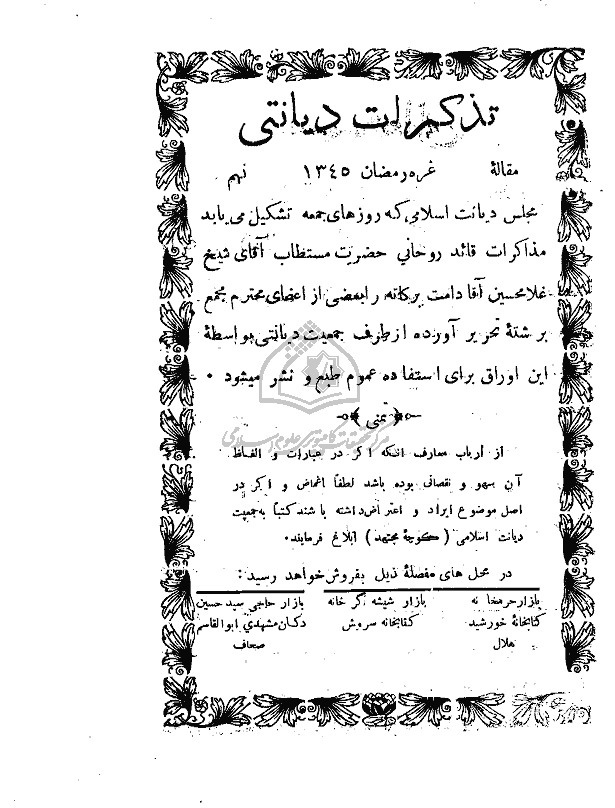 تذکرات دیانتی
مقالهٔ غره رمضان ۱۳٤٥ نهم
مجلس دیانت اسلامی که روزهای جمعه تشکیل می یابد
مذاکرات قائد روحانی حضرت مستطاب آقای شیخ
غلامحسین آقا دامت برکاته را بعضی از اعضای محترم مجمع
برشتهٔ تحریر آورده از طرف جمعیت دیانتی بواسطهٔ
این اوراق برای استفاده عموم طبع و نشر میشود .
تمنی
مرکز تحقیقات کامپیوتری علوم اسلامی
از ارباب معارف آنکه اگر در عبارات و الفاظ
آن سهو و نقصانی بوده باشد لطفاً اغماض و اگر در
اصل موضوع ایراد و اعتراض داشته باشند کتباً به جمعیت
دیانت اسلامی ( کوچهٔ مجتهد ) ابلاغ فرمایند .
در محل های مفصلهٔ ذیل بفروش خواهد رسید :
بازار حرمخانه
کتابخانهٔ خورشید
هلال
بازار شیشه گر خانه
کتابخانه سروش
بازار حاجی سید حسین
دکان مشهدی ابوالقاسم
صحاف